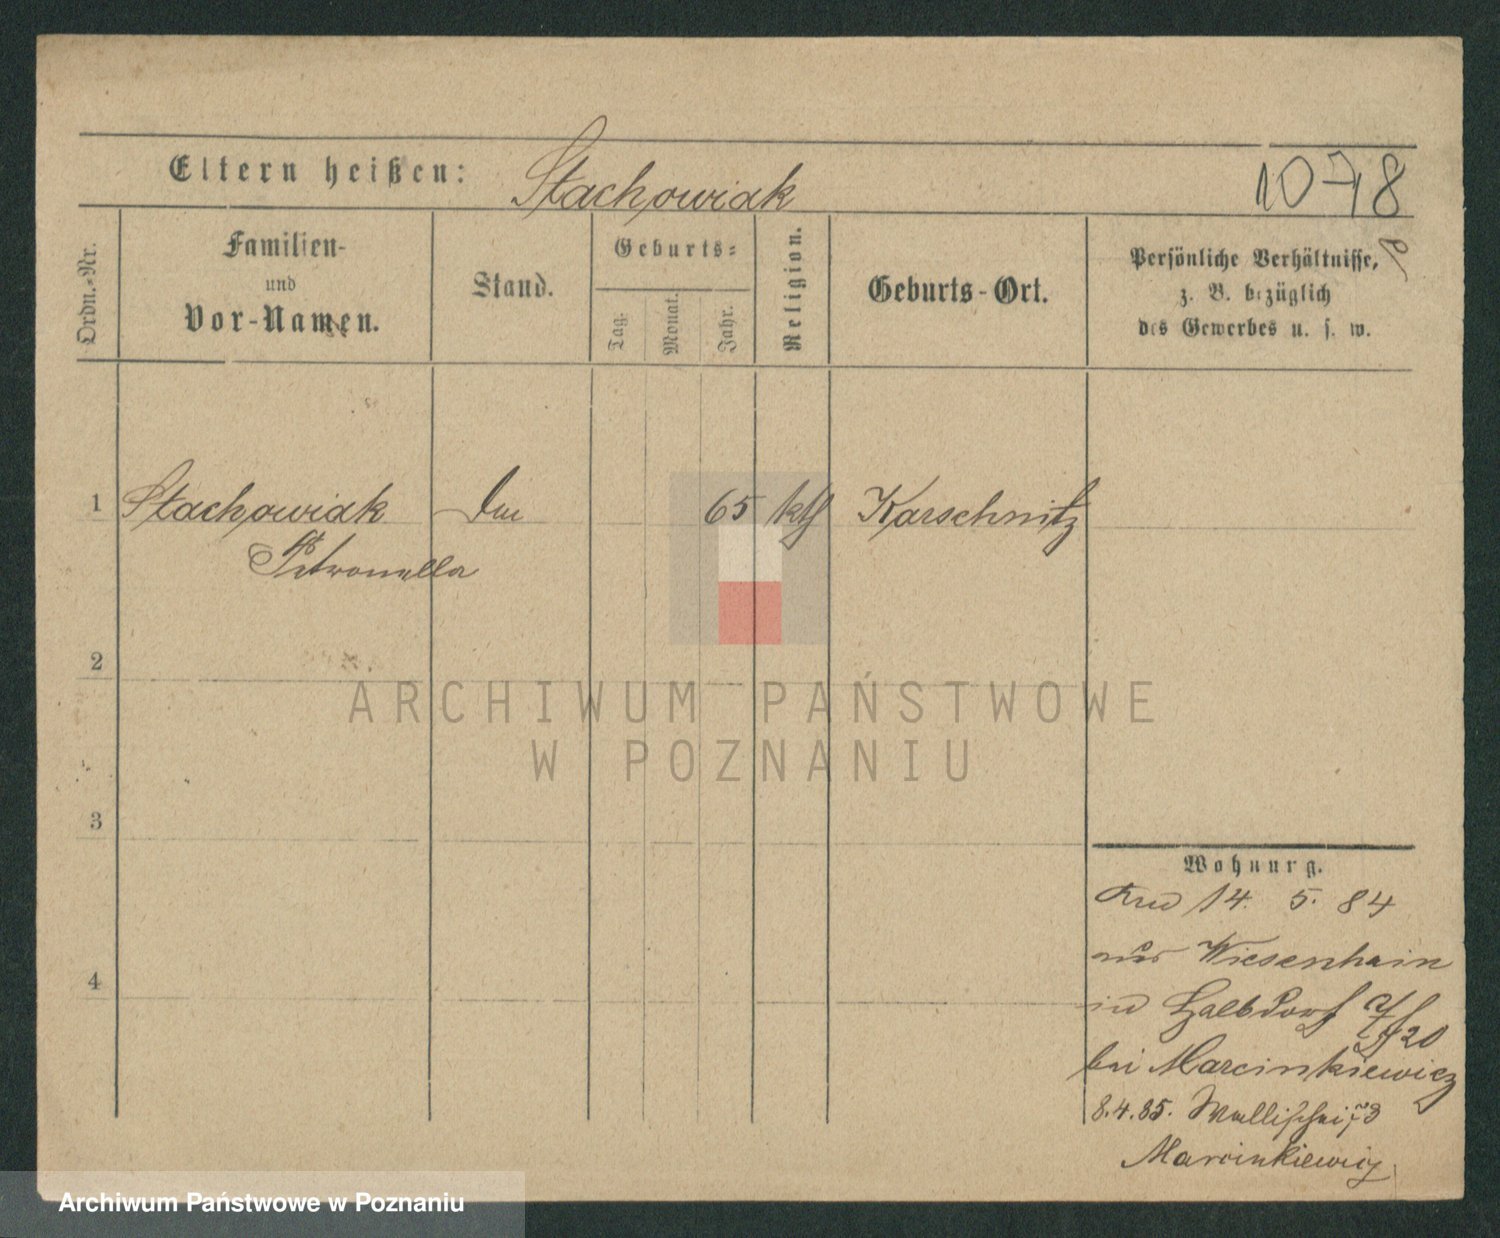 Eltern heißen: Stachowiak
1078
Ordn.-Nr.
Familien-
und
Vor-Namen.
Stand.
Geburts-
Tag.
Monat.
Jahr.
Religion.
Geburts-Ort.
Persönliche Verhältnisse,
z. B. bezüglich
des Gewerbes u. s. w.
1 Stachowiak 65 kth Karschnitz
Petronella
2
ARCHIWUM PAŃSTWOWE
W POZNANIU
3
Wohnung.
14. 5. 84
aus Wiesenhain
4
in Halbdorf 20
bei Marcinkiewicz
8.4.85. Wallischei 73
Marcinkiewicz
Archiwum Państwowe w Poznaniu